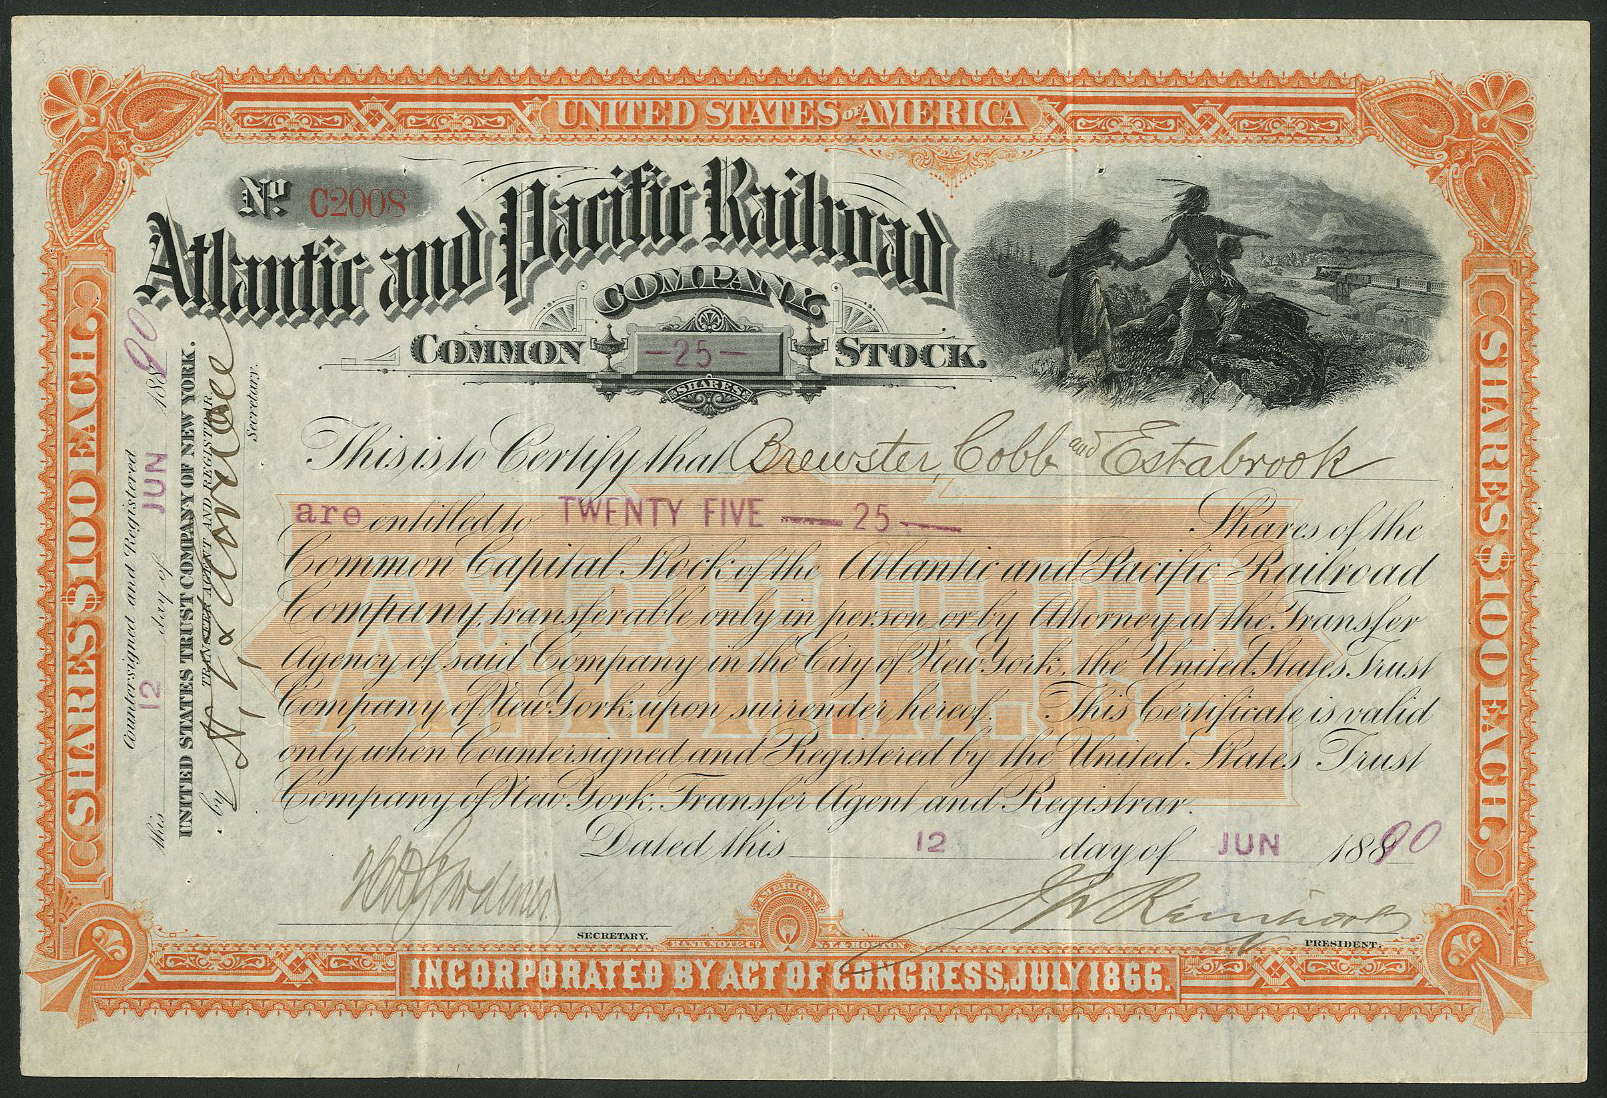 UNITED STATES OF AMERICA
No. C2008
Atlantic and Pacific Railroad
COMPANY.
COMMON —25— STOCK.
SHARES
This is to Certify that Brewster, Cobb and Estabrook
are entitled to TWENTY FIVE — 25 — Shares of the
Common Capital Stock of the Atlantic and Pacific Railroad
Company, transferable only in person or by Attorney at the Transfer
Agency of said Company in the City of New York, the United States Trust
Company of New York, upon surrender hereof. This Certificate is valid
only when Countersigned and Registered by the United States Trust
Company of New York, Transfer Agent and Registrar.
A&P.R.R.Co
Dated this 12 day of JUN 1890
SECRETARY.
PRESIDENT.
AMERICAN
BANK NOTE CO. N.Y. & BOSTON
INCORPORATED BY ACT OF CONGRESS, JULY 1866.
SHARES $100 EACH.
SHARES $100 EACH.
Countersigned and Registered
this 12 day of JUN 1890
UNITED STATES TRUST COMPANY OF NEW YORK.
TRANSFER AGENT AND REGISTRAR
by
Secretary.